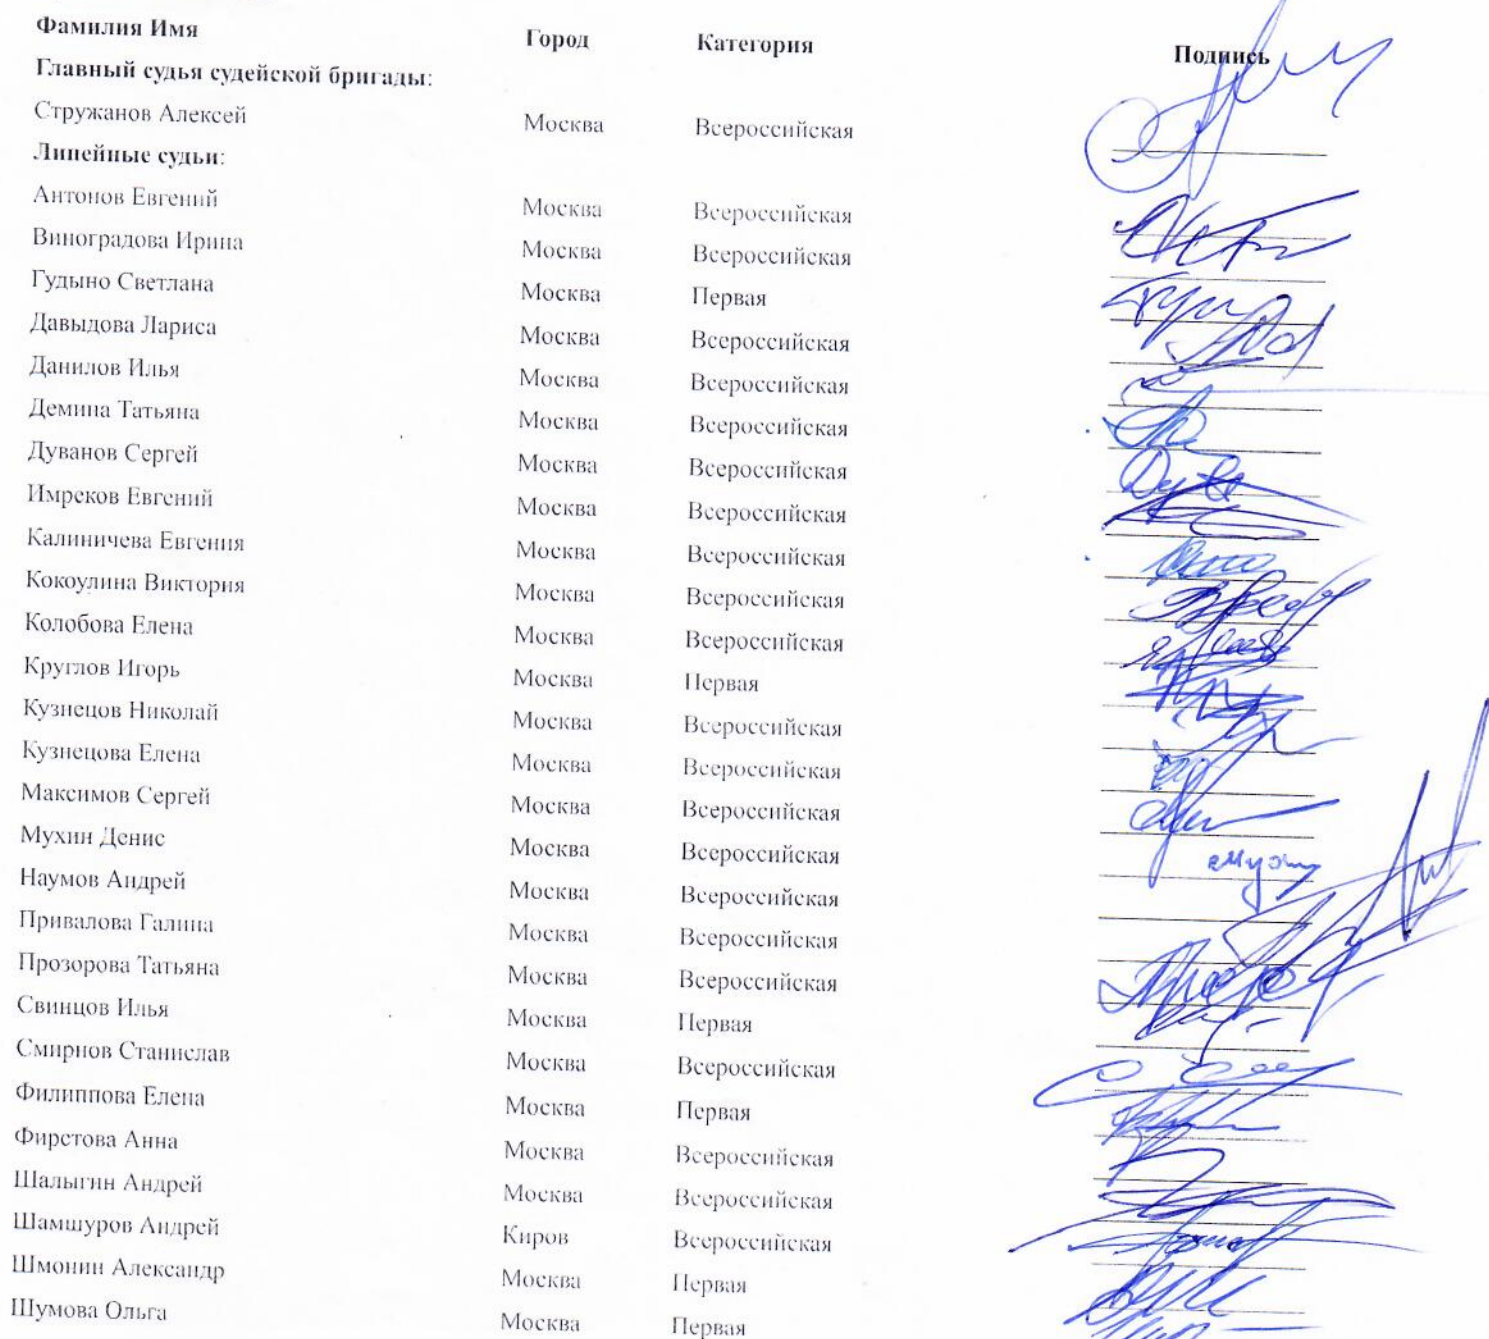 Фамилия Имя Город Категория Подпись
Главный судья судейской бригады:
Стружанов Алексей Москва Всероссийская
Линейные судьи:
Антонов Евгений Москва Всероссийская
Виноградова Ирина Москва Всероссийская
Гудыно Светлана Москва Первая
Давыдова Лариса Москва Всероссийская
Данилов Илья Москва Всероссийская
Демина Татьяна Москва Всероссийская
Дуванов Сергей Москва Всероссийская
Имреков Евгений Москва Всероссийская
Калиничева Евгения Москва Всероссийская
Кокоулина Виктория Москва Всероссийская
Колобова Елена Москва Всероссийская
Круглов Игорь Москва Первая
Кузнецов Николай Москва Всероссийская
Кузнецова Елена Москва Всероссийская
Максимов Сергей Москва Всероссийская
Мухин Денис Москва Всероссийская
Наумов Андрей Москва Всероссийская
Привалова Галина Москва Всероссийская
Прозорова Татьяна Москва Всероссийская
Свинцов Илья Москва Первая
Смирнов Станислав Москва Всероссийская
Филиппова Елена Москва Первая
Фирстова Анна Москва Всероссийская
Шалыгин Андрей Москва Всероссийская
Шамшуров Андрей Киров Всероссийская
Шмонин Александр Москва Первая
Шумова Ольга Москва Первая